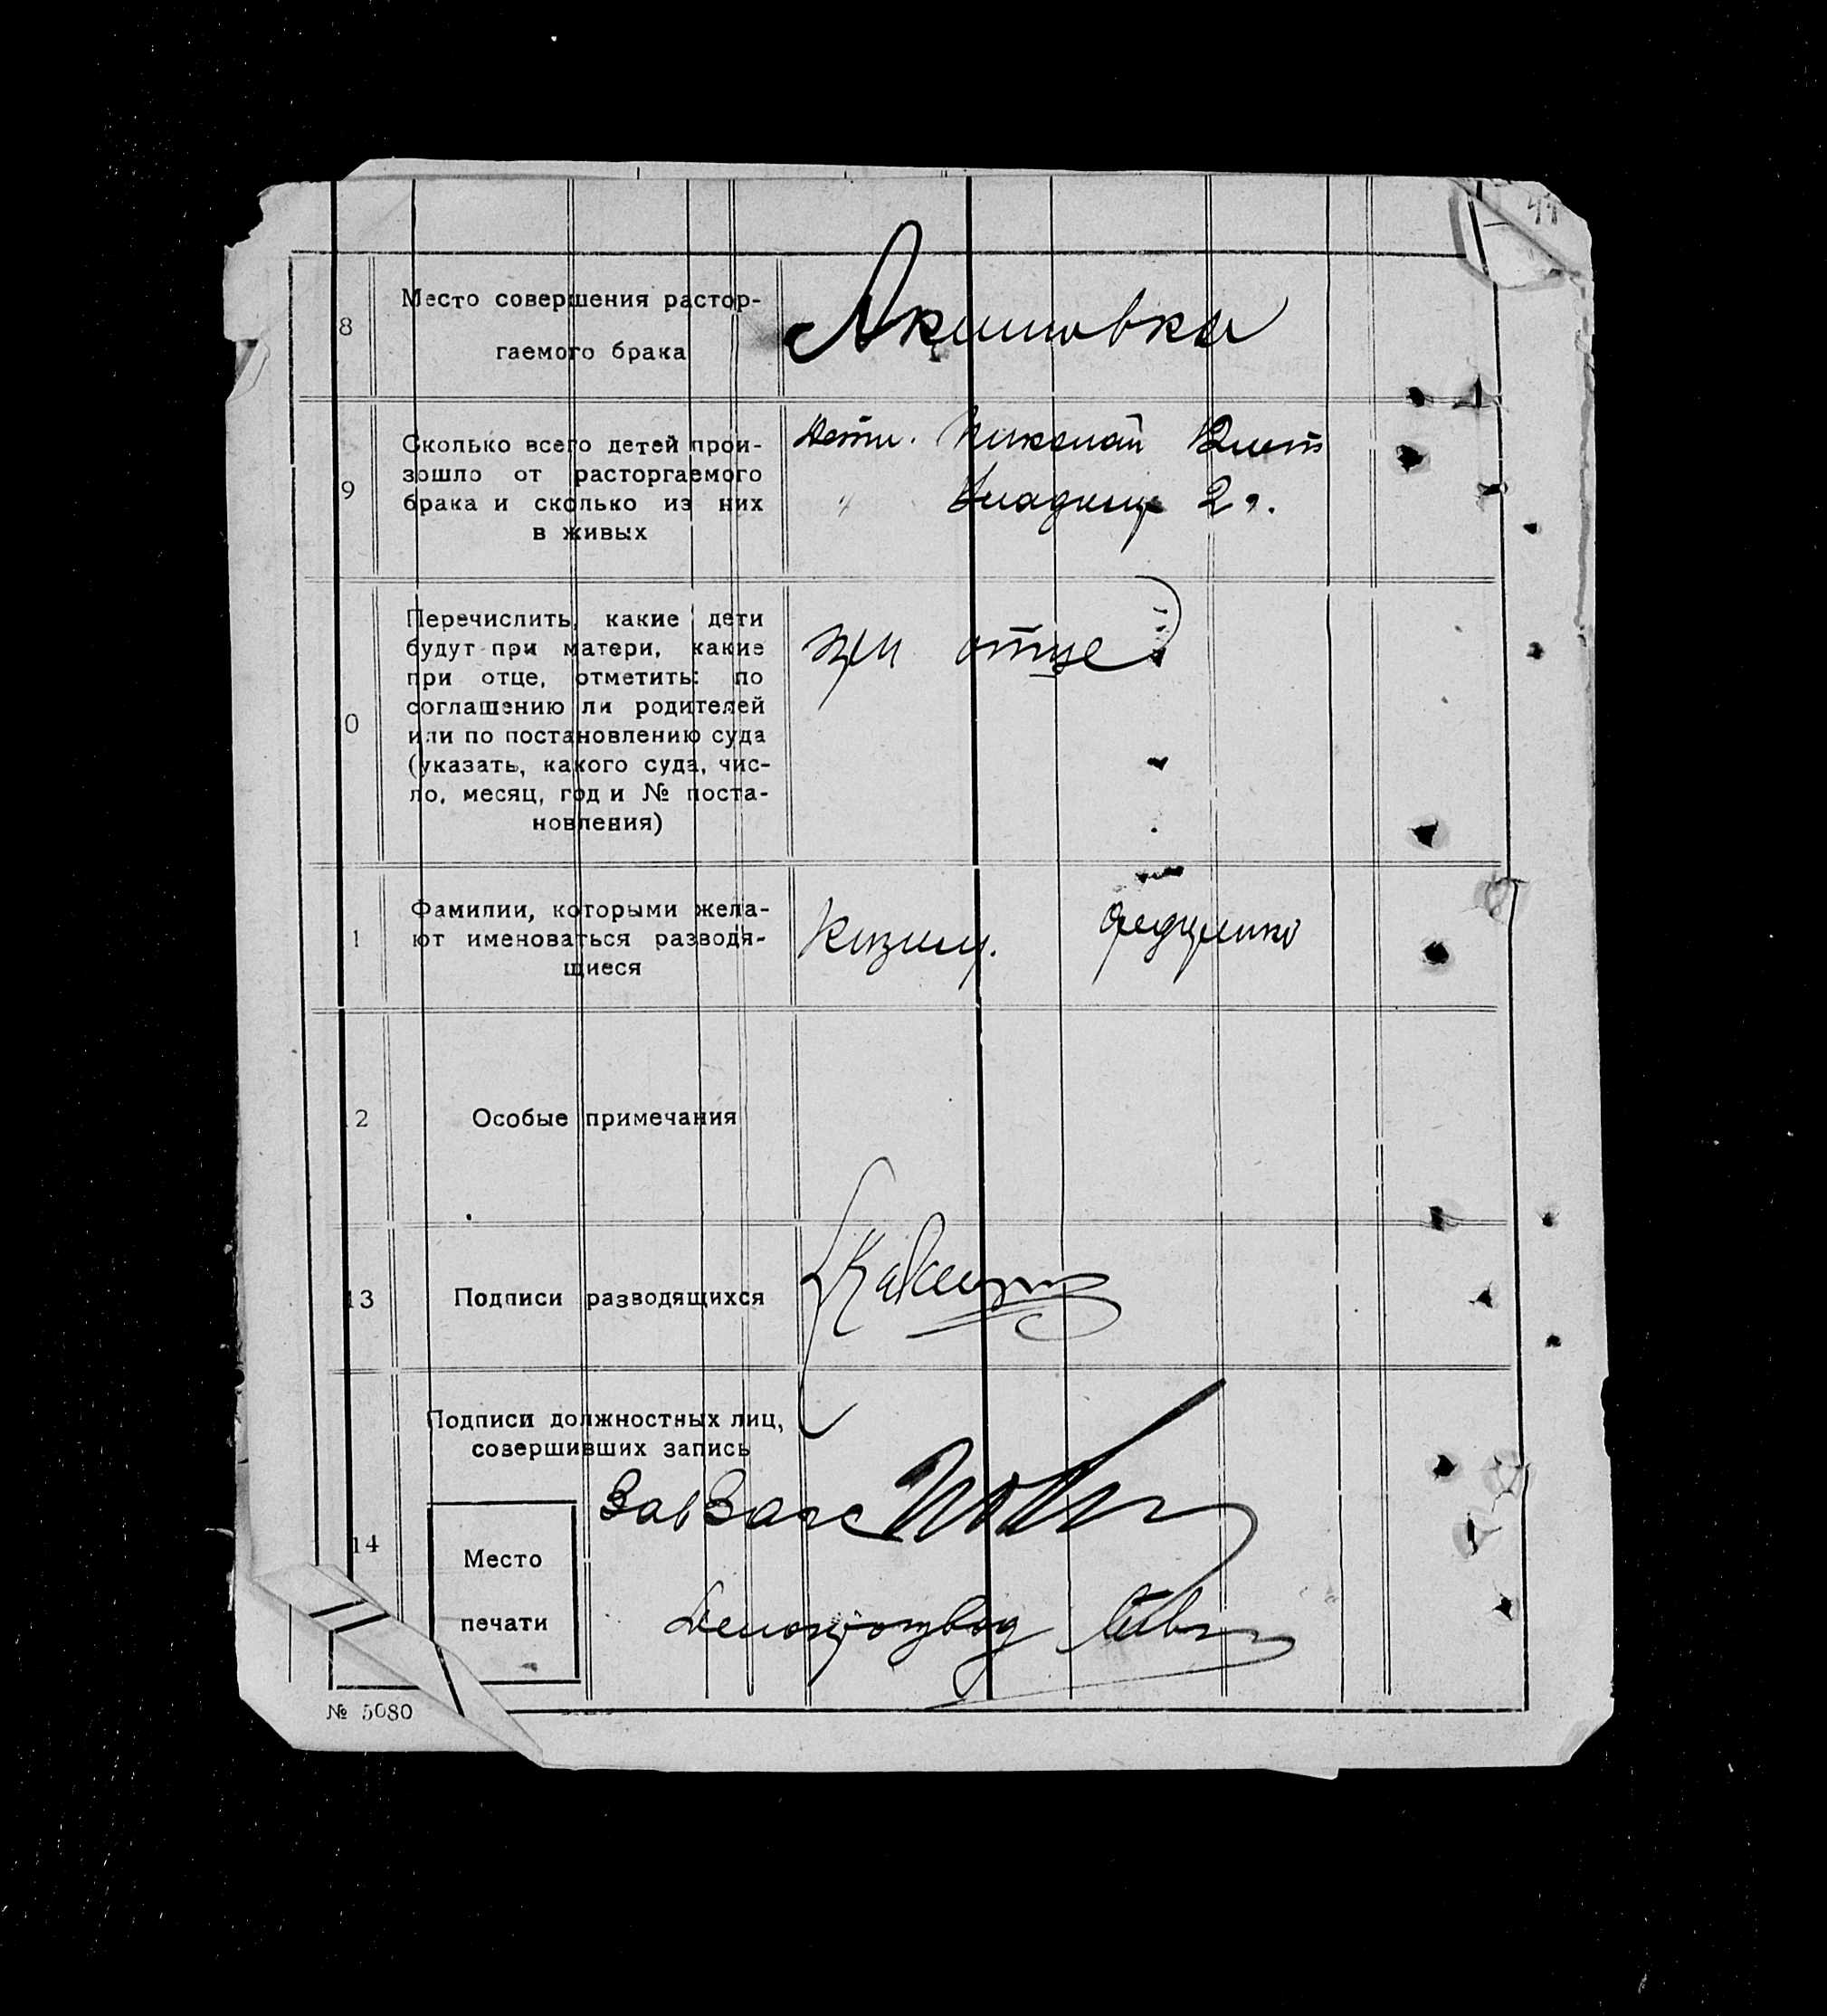 44
8
Место совершения растор-
гаемого брака
Акимовка
9
Сколько всего детей прои-
зошло от расторгаемого
брака и сколько из них
в живых
Дети. Николай 12 лет
" Владимир 2 г.
0
Перечислить, какие дети
будут при матери, какие
при отце, отметить: по
соглашению ли родителей
или по постановлению суда
(указать, какого суда, чис-
ло, месяц, год и № поста-
новления)
при отце
1
Фамилии, которыми жела-
ют именоваться разводя-
щиеся
2
Особые примечания
13
Подписи разводящихся
14
Подписи должностных лиц,
совершивших запись
ЗавЗагс
Делопроизвод
Место
печати
№ 5080